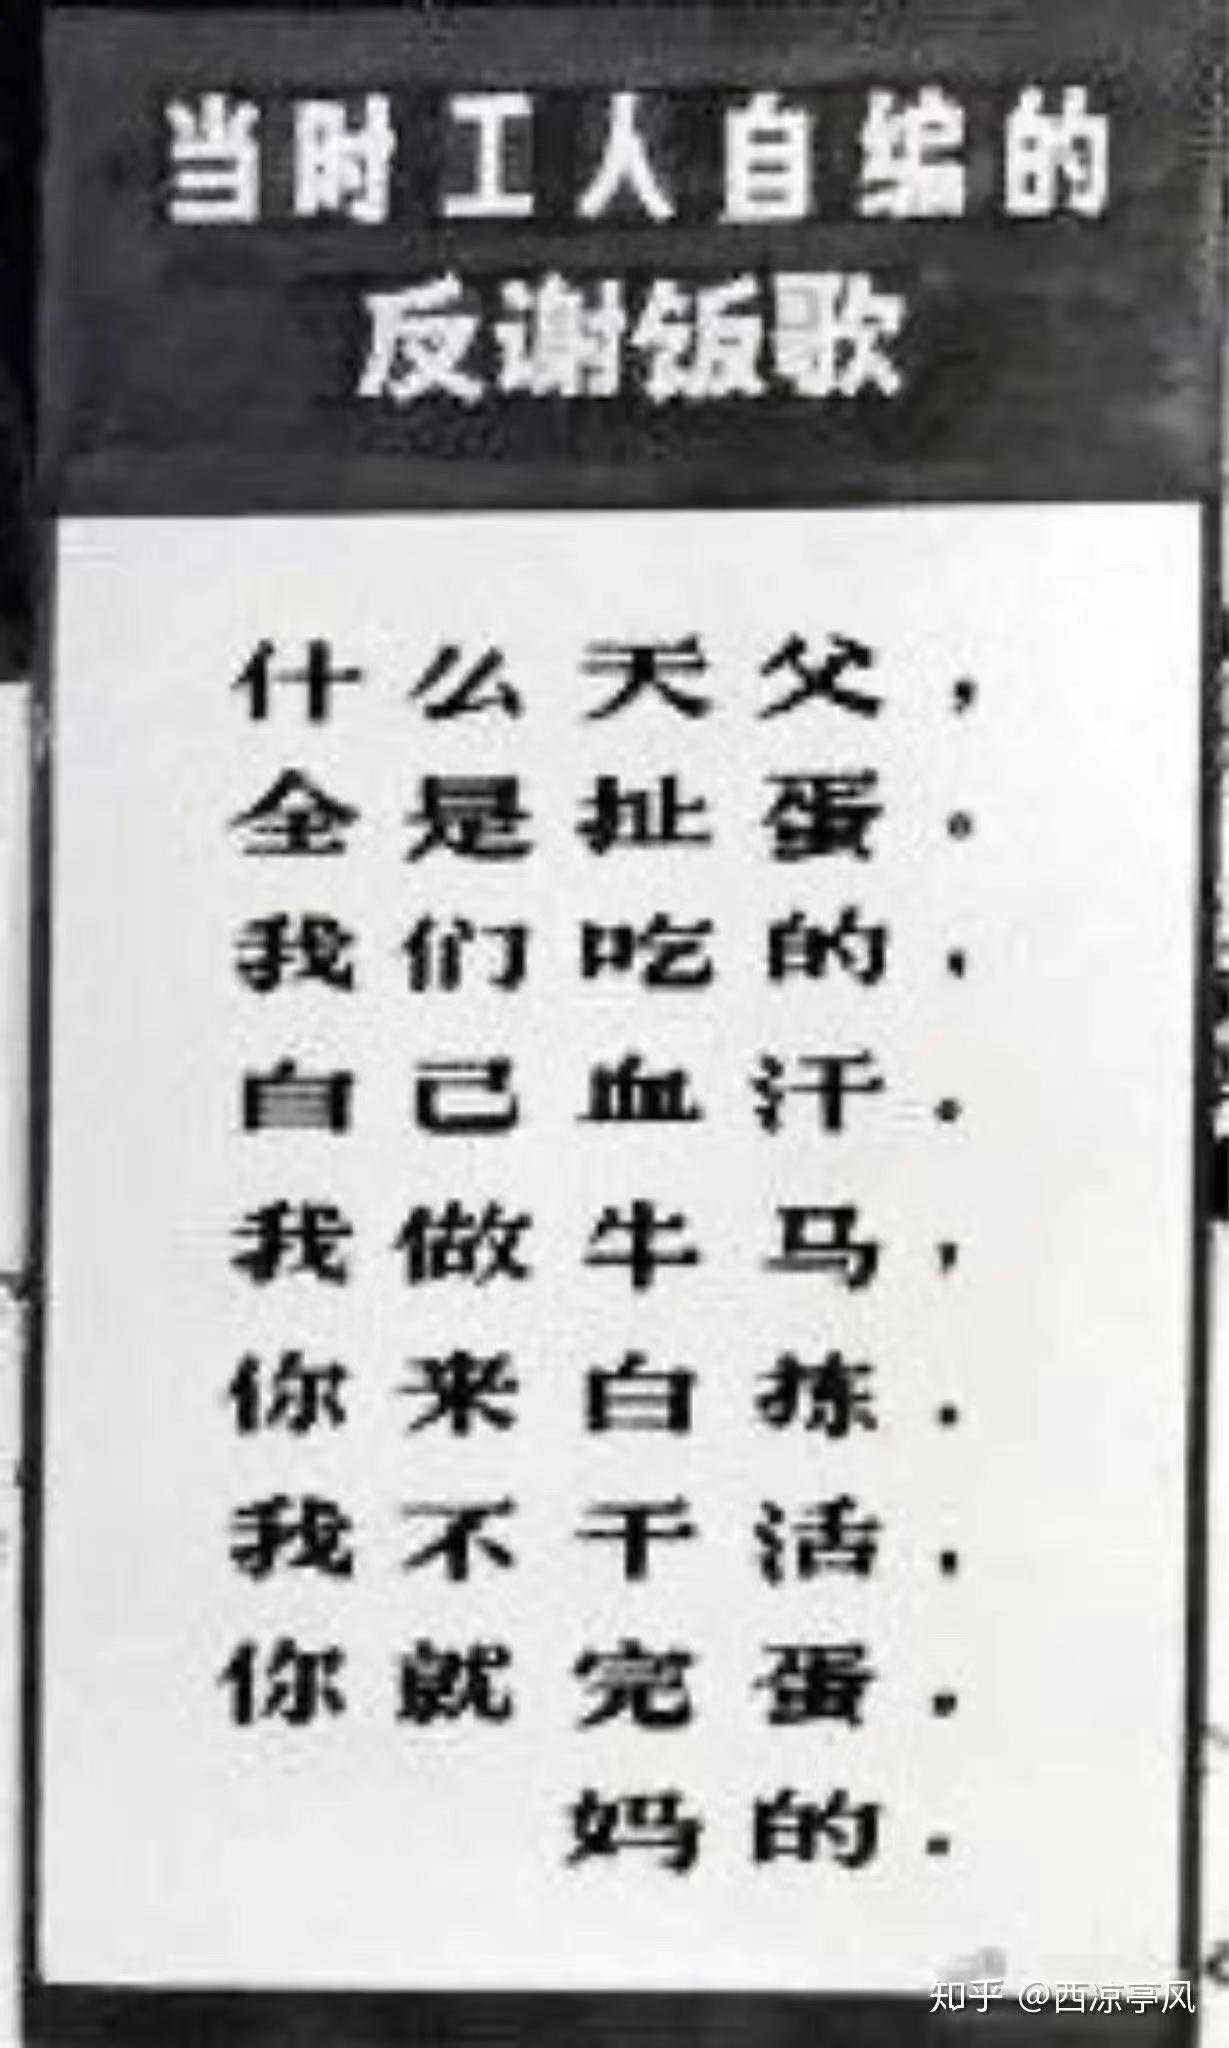 当时工人自编的
反谢饭歌
什么天父，
全是扯蛋。
我们吃的，
自己血汗。
我做牛马，
你来白拣．
我不干活，
你就完蛋．
妈的．
知乎 @西凉亭风